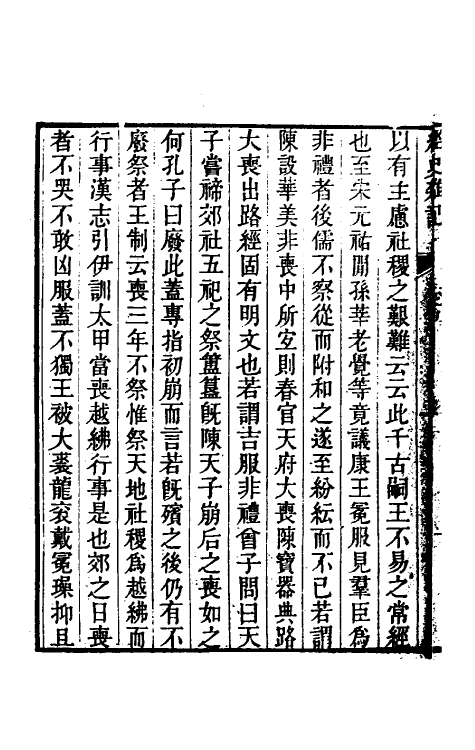 經史雜記
以有主慮社稷之艱難云云此千古嗣王不易之常經
也至宋元祐閒孫莘老覺等竟議康王冕服見羣臣爲
非禮者後儒不察從而附和之遂至紛紜而不已若謂
陳設華美非喪中所宐則春官天府大喪陳寶器典路
大喪出路經固有明文也若謂吉服非禮曾子問曰天
子嘗禘郊社五祀之祭簠簋旣陳天子崩后之喪如之
何孔子曰廢此蓋專指初崩而言若旣殯之後仍有不
廢祭者王制云喪三年不祭惟祭天地社稷爲越紼而
行事漢志引伊訓太甲當喪越紼行事是也郊之日喪
者不哭不敢凶服蓋不獨王被大裘龍衮戴冕璪抑且